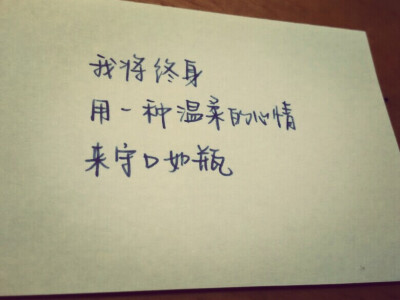 我将终身
用一种温柔的心情
来守口如瓶